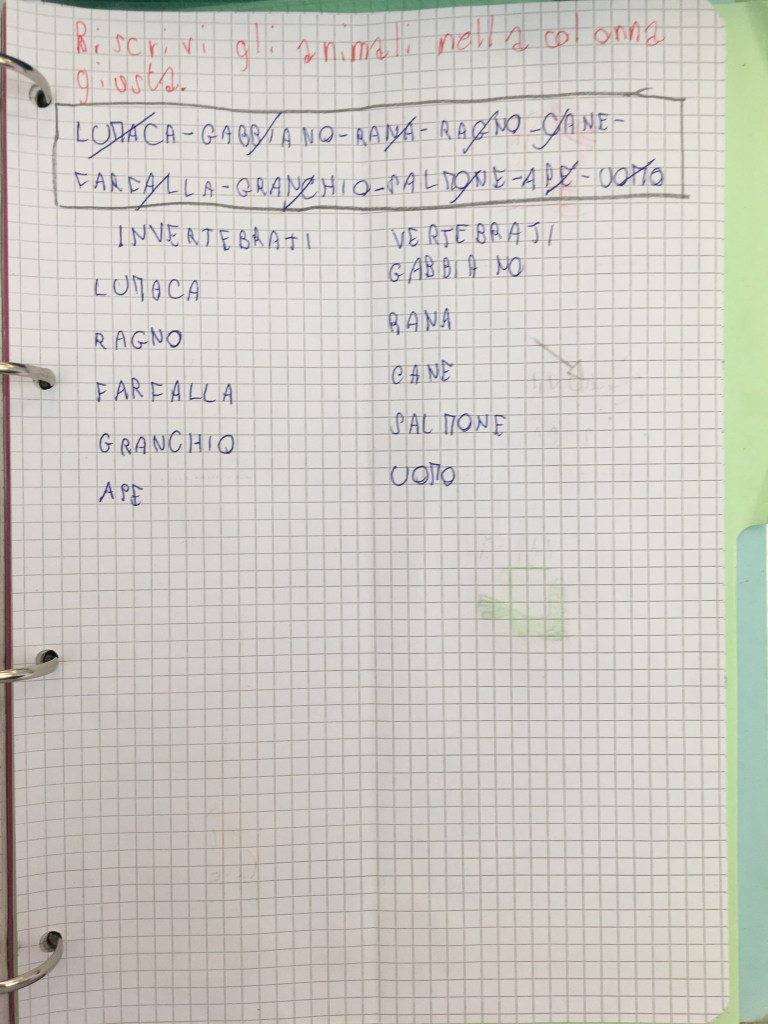 Riscrivi gli animali nella colonna
giusta.
LUMACA-GABBIANO-RANA-RAGNO-CANE-
FARFALLA-GRANCHIO-SALMONE-APE-UOMO
INVERTEBRATI VERTEBRATI
GABBIANO
LUMACA
RANA
RAGNO
CANE
FARFALLA
SALMONE
GRANCHIO
UOMO
APE